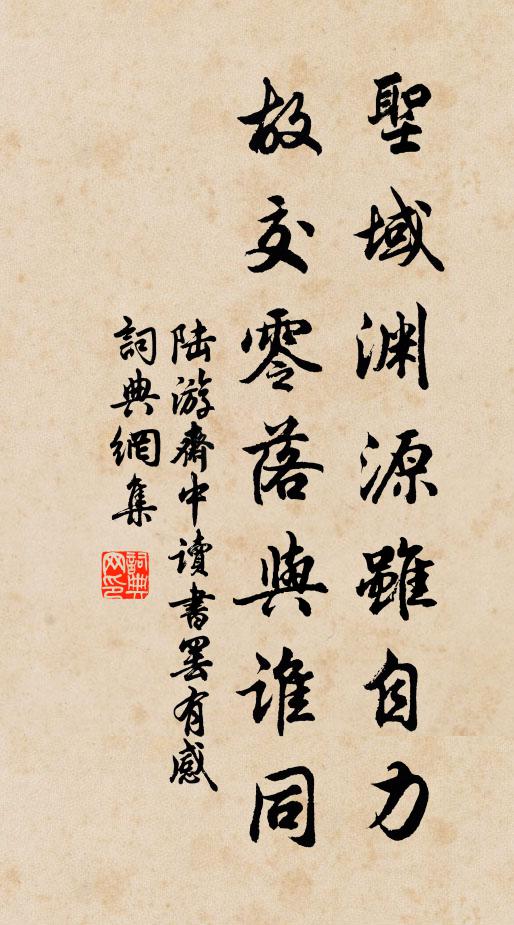 聖域渊源雖自力
故交零落與誰同
陆游齋中讀書罢有感
詞典網集
詞典网印